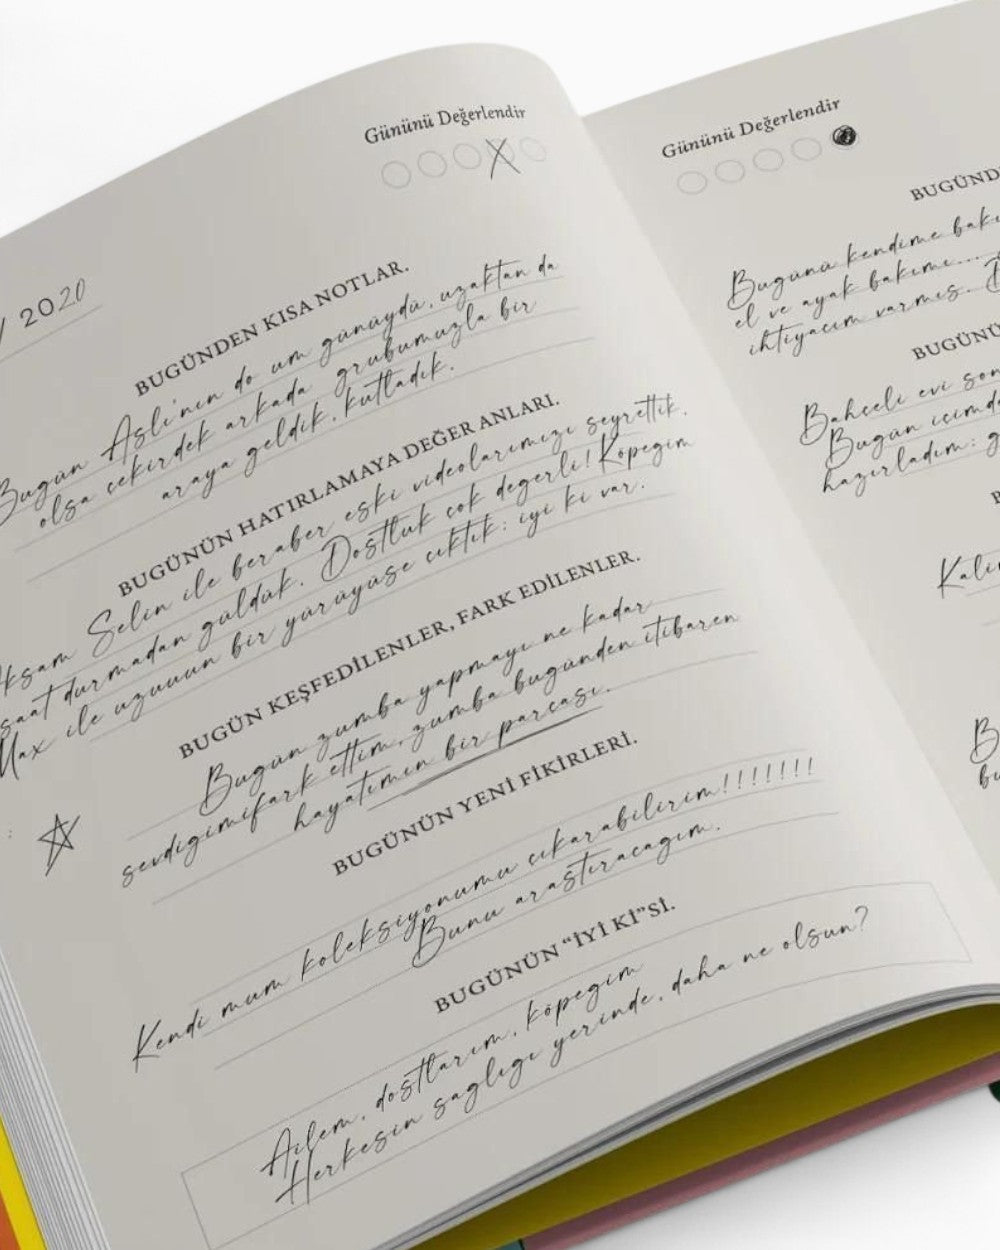 Gününü Değerlendir
/ 2020
BUGÜNDEN KISA NOTLAR.
Bugün Aslı'nın do um günüydü, uzaktan da
olsa çekirdek arkada grubumuzla bir
araya geldik, kutladık.
BUGÜNÜN HATIRLAMAYA DEĞER ANLARI.
Akşam Selin ile beraber eski videolarımızı seyrettik,
saat durmadan güldük. Dostluk çok degerli! Köpegim
Max ile uzuuun bir yürüyüşe çıktık; iyi ki var.
BUGÜN KEŞFEDİLENLER, FARK EDİLENLER.
Bugün zumba yapmayı ne kadar
sevdigimifark ettim, zumba bugünden itibaren
hayatımın bir parçası.
BUGÜNÜN YENİ FİKİRLERİ.
Kendi mum koleksiyonumu çıkarabilirim!!!!!!!
Bunu araştıracagım.
BUGÜNÜN “İYİ Kİ”Sİ.
Ailem, dostlarım, köpegim
Herkesin saglıgı yerinde, daha ne olsun?
Gününü Değerlendir
BUGÜND
Bugünü kendime bakı
el ve ayak bakımı....
ihtiyacım varmış.
BUGÜNÜ
Bahçeli evi son
Bugün içimde
hazırladım; g
B
Kalı
B
bu